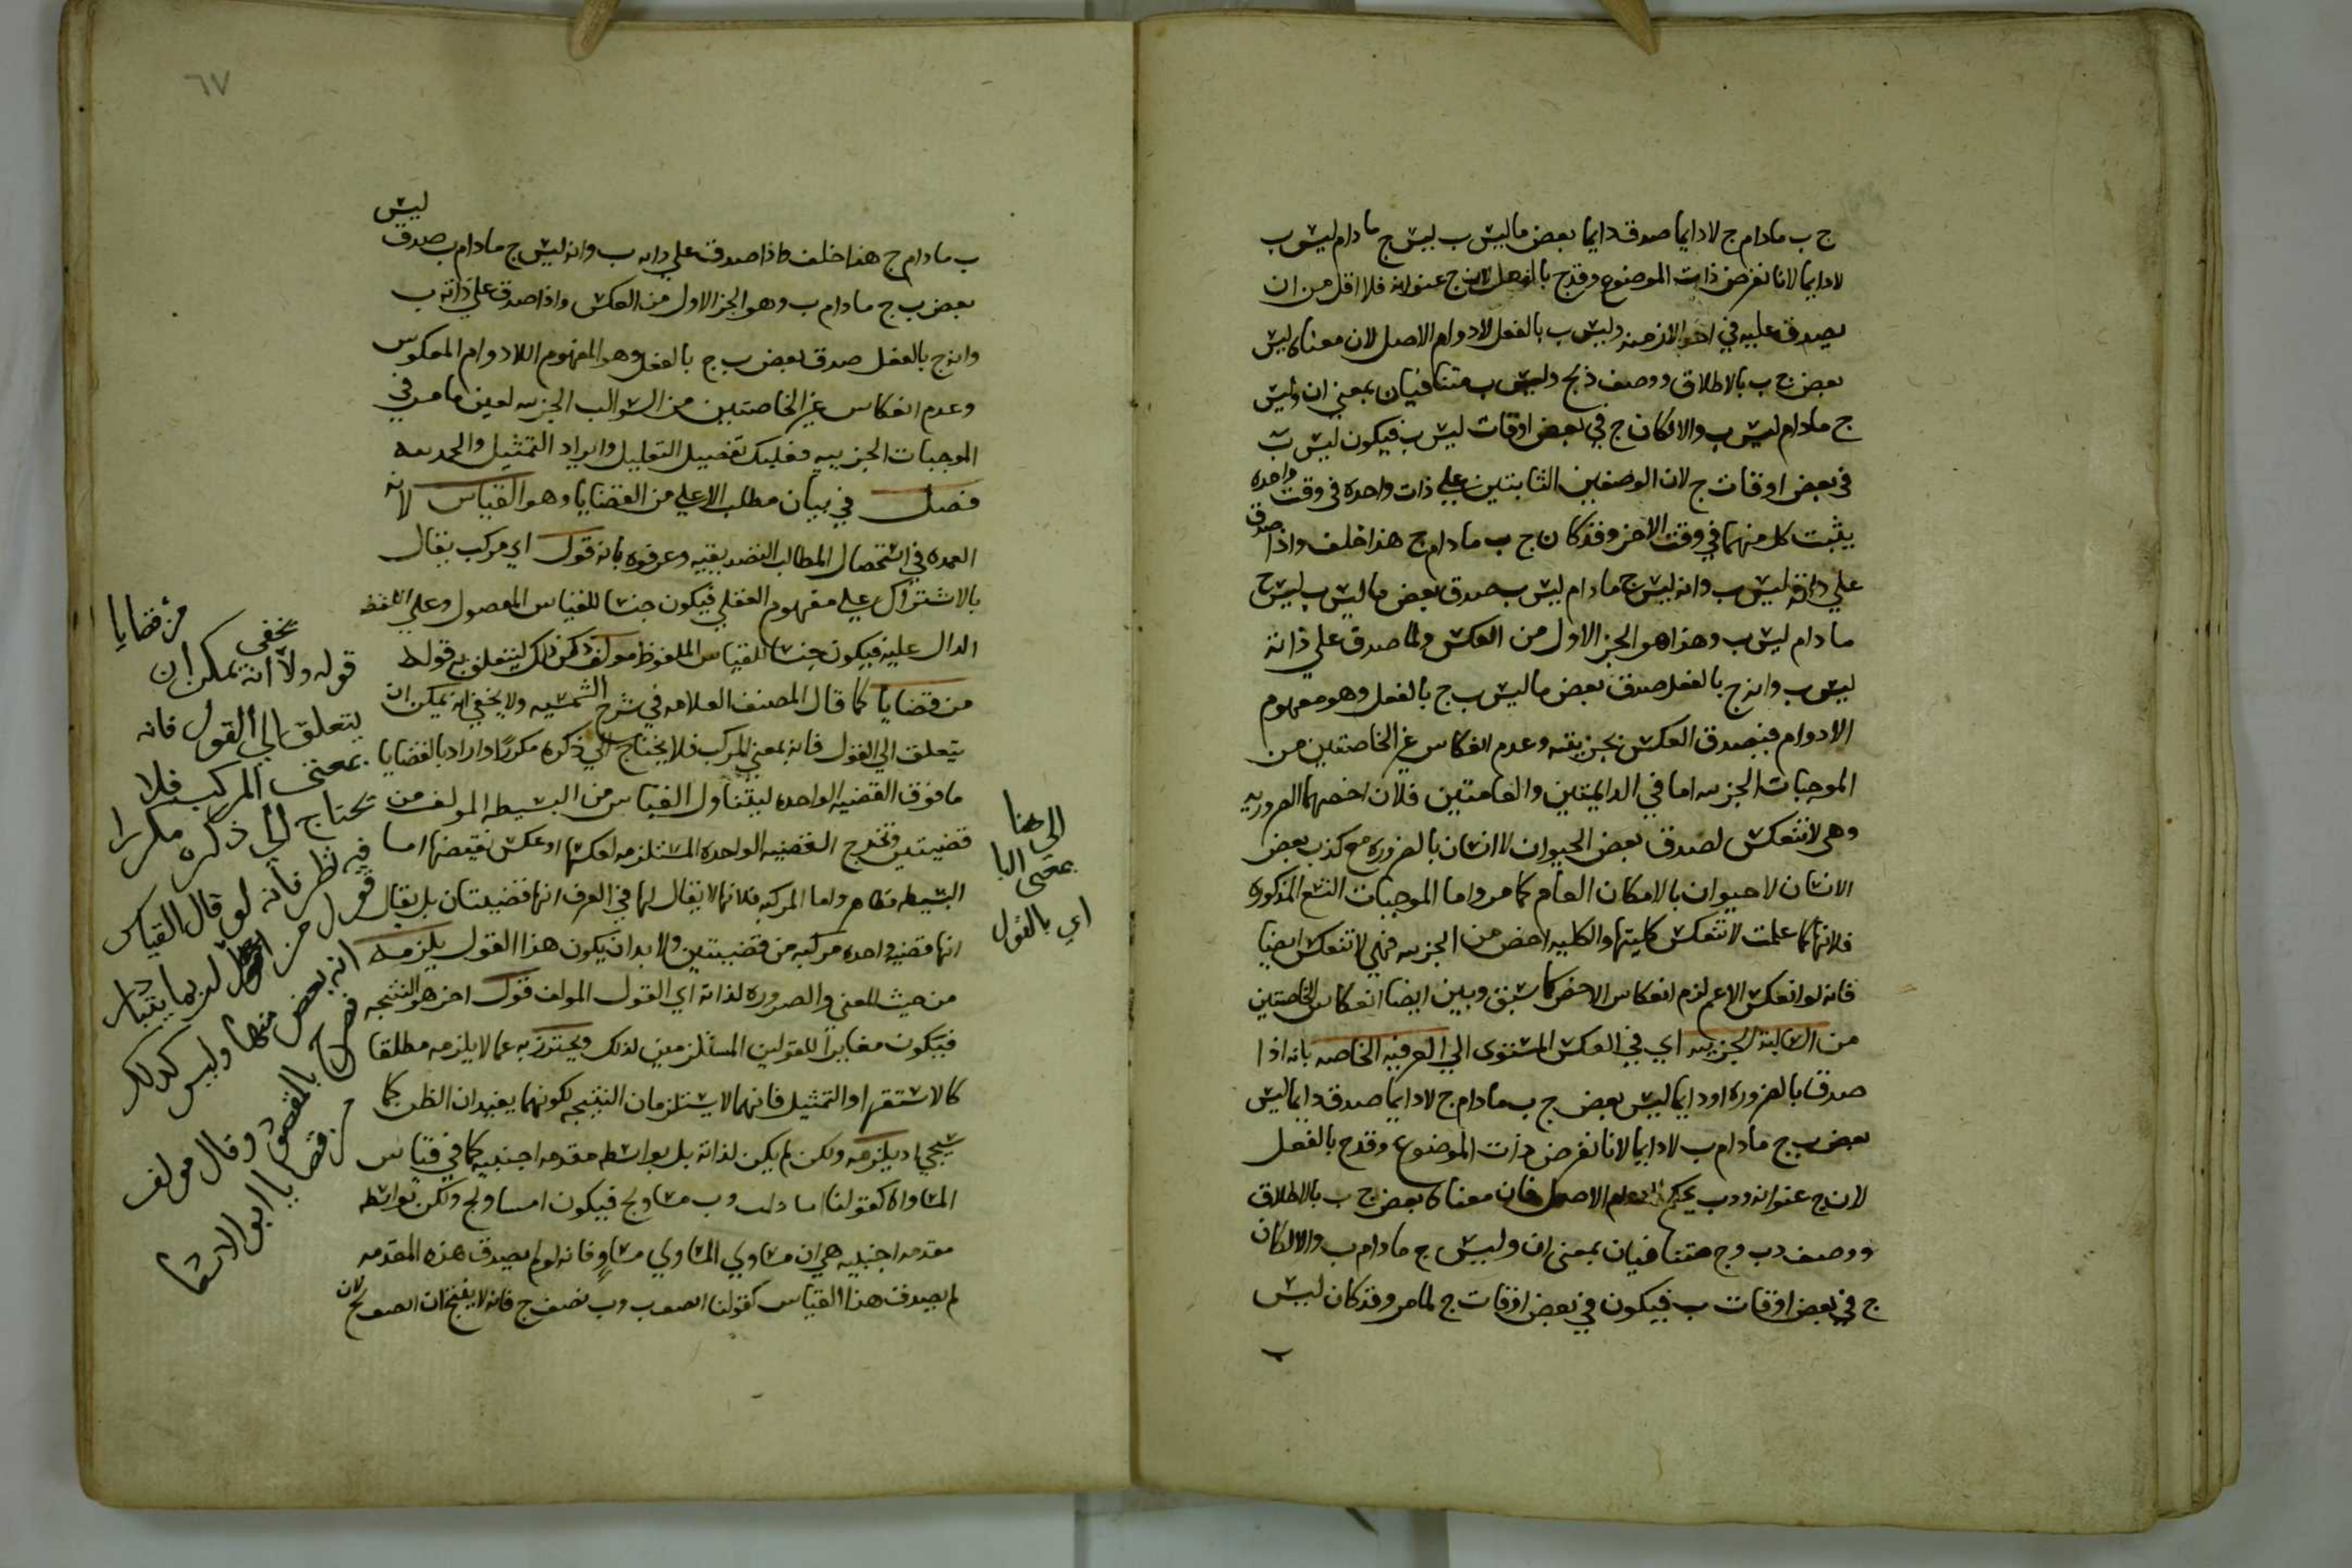 ج ب مادام ج لا دايما صدق دايما بعض ما ليس ب ليس ج مادام ليس ب
لا دايما لانا نفرض ذات الموضوع وقدج بالفعل لان ج عنوانه فلا اقل من ان
يصدق عليه في احد الازمنه وليس ب بالفعل لادوام الاصل لان معناه ليس
بعض ج ب بالاطلاق ووصف ج وليس ب متنافيان بمعني ان وليس
ج مادام ليس ب والا لكان ج في بعض اوقات ليس ب فيكون ليس ب
في بعض اوقات ج لان الوصفين الثابتين علي ذات واحدة في وقت واحده
يثبت كل منهما في وقت الاخر وقد كان ج ب مادام ج هذا خلف واذا صدق
علي ذاته ليس ب وانه ليس ج مادام ليس ب صدق بعض ما ليس ب ليس ج
مادام ليس ب وهذا هو الجز الاول من العكس ولما صدق علي ذاته
ليس ب وانه ج بالفعل صدق بعض ما ليس ب ج بالفعل وهو مفهوم
الادوام فيصدق العكس بجزيته وعدم انعكاس غير الخاصتين من
الموجبات الجزييه اما في الدايمتين والعامتين فلان اخصهما الضروريه
وهي لا تنعكس لصدق بعض الحيوان لا انسان بالضروره مع كذب بعض
الانسان لا حيوان بالامكان العام كما مر واما الموجبات التسع المذكوره
فلانها كما علمت لا تنعكس كليتها والكليه اخص من الجزييه فهي لا تنعكس ايضا
فانه لو انعكس الاعم لزم انعكاس الاخص كما سبق وبين ايضا انعكاس الخاصتين
من السالبة الجزييه اي في العكس المستوي الي العرفيه الخاصه بانه اذا
صدق بالضروره او دايما ليس بعض ج ب مادام ج لا دايما صدق دايما ليس
بعض ب ج مادام ب لا دايما لانا نفرض ذات الموضوع وقدج بالفعل
لان ج عنوانه ودب بحكم لادوام الاصل فان معناه بعض ج ب بالاطلاق
ووصف دب وج متنافيان بمعني ان وليس ج مادام ب والا لكان
ج في بعض اوقات ب فيكون في بعض اوقات ج لما مر وقد كان ليس
ب
٦٧
ليس
ب مادام ج هذا خلف واذا صدق علي ذاته ب وانه ليس ج مادام ب صدق
بعض ب ج مادام ب وهو الجز الاول من العكس واذا صدق علي ذاته ب
وانه ج بالفعل صدق بعض ب ج بالفعل وهو المفهوم اللادوام المعكوس
وعدم انعكاس غير الخاصتين من السوالب الجزييه لعين ما مر في
الموجبات الجزييه فعليك تفصيل التعليل وايراد التمثيل والحمد لله
فصل في بيان مطلب الاعلي من القضايا وهو القياس لانه
العمده في استحصال المطالب التصديقيه وعرفوه بانه قول اي مركب يقال
بالاشتراك علي مفهوم العقلي فيكون جنسا للقياس المعقول وعلي اللفظ
الدال عليه فيكون جنسا للقياس الملفوظ مولف ذكر ذلك ليتعلق به قوله
من قضايا كما قال المصنف العلامه في شرح الشمسيه ولا يخفي انه يمكن ان
يتعلق الي القول فانه بمعني المركب فلا يحتاج الي ذكره مكررا واراد بالقضايا
ما فوق القضيه الواحده ليتناول القياس من البسيطه المولف من
قضيتين وتخرج القضيه الواحده المستلزمه لعكسها او عكس نقيضها اما
البسيطه فظاهر واما المركبه فلانها لا يقال لها في العرف انها قضيتان بل يقال
انها قضيه واحده مركبه من قضيتين ولا بد ان يكون هذا القول يلزمه
من حيث المعني والصوره لذاته اي القول المولف قول اخر هو النتيجه
فيكون مغايرا للقولين المستلزمين لذلك ويحترز به عما لا يلزمه مطلقا
كالاستقرا والتمثيل فانهما لا يستلزمان النتيجه لكونهما يفيدان الظن كما
سيجي او يلزمه ولكن لم يكن لذاته بل بواسطه مقدمه اجنبيه كما في قياس
المساواة كقولنا ا مساو لب وب مساو لج فيكون ا مساو لج ولكن بواسطه
مقدمه اجنبيه هي ان مساوي المساوي مساو فانه لو لم يصدق هذه المقدمه
لم يصدق هذا القياس كقولنا ا نصف ب وب نصف ج فانه لا ينتج ان ا نصف لج لان
من قضايا
قوله ولا يخفى انه يمكن ان
يتعلق الي القول فانه
بمعنى المركب فلا
يحتاج الي ذكره مكررا
فيه نظر فانه لو قال القياس
قول من لربما يتبادر
انه بعض منها وليس كذلك
فصرح بالمقصود وقال مولف
من قضايا ابو الاسعا
الى هنا
بمعنى البا
اي بالقول